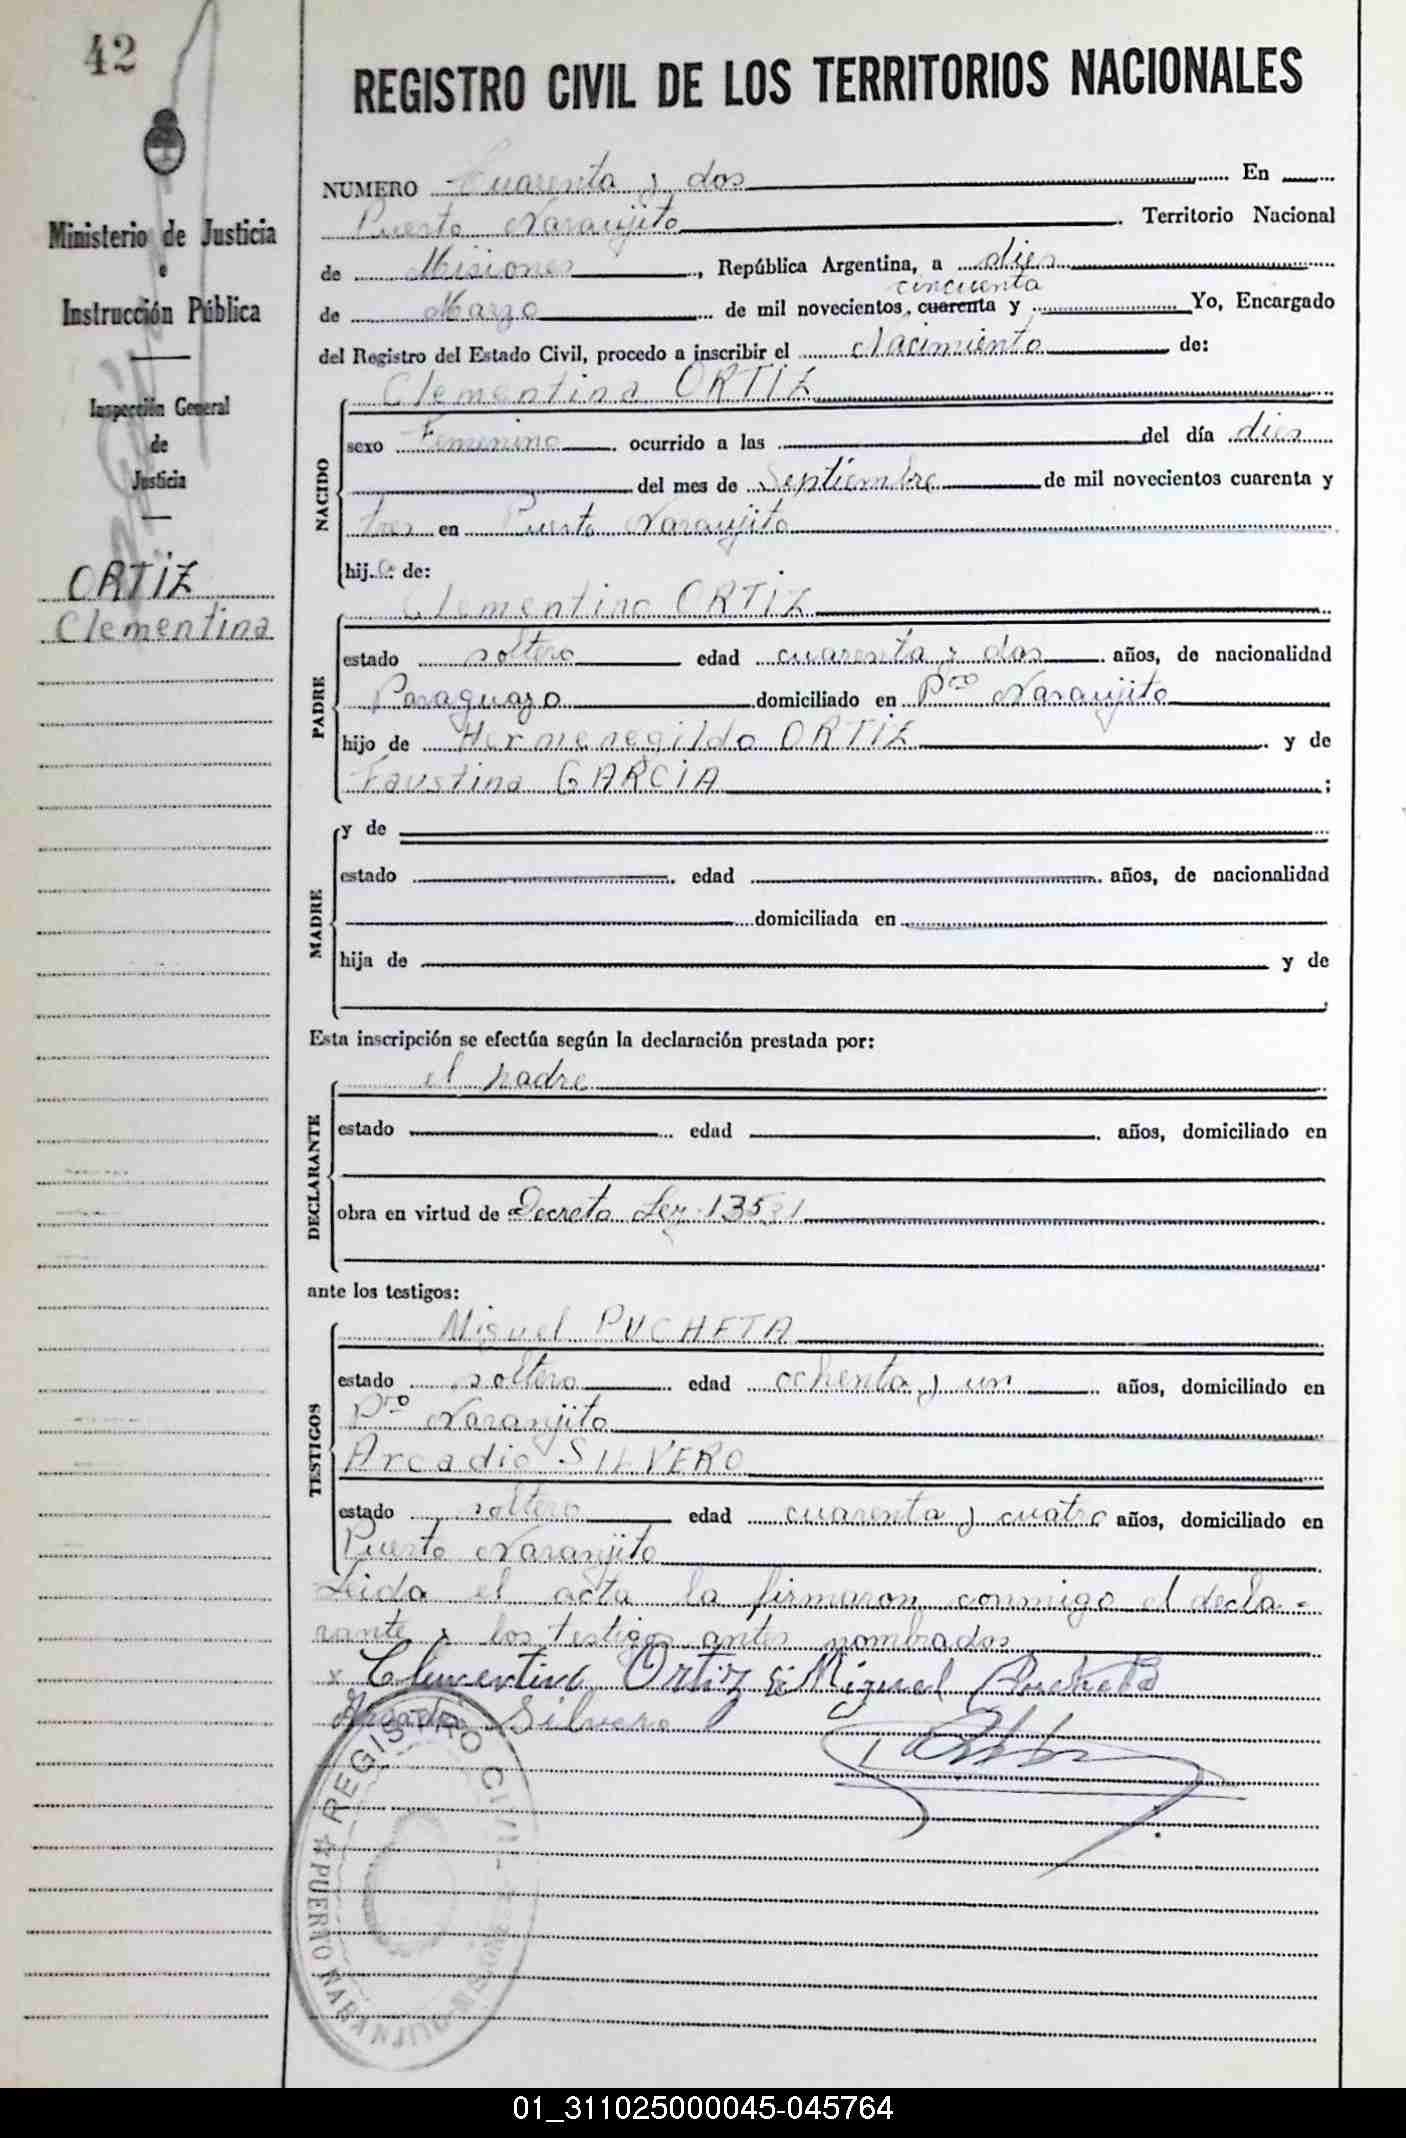 42
REGISTRO CIVIL DE LOS TERRITORIOS NACIONALES
Ministerio de Justicia
e
Instrucción Pública
Inspección General
de
Justicia
ORTIZ
Clementina
NUMERO Cuarenta y dos En
Puerto Naranjito Territorio Nacional
de Misiones, República Argentina, a diez
cincuenta
de Marzo de mil novecientos cuarenta y Yo, Encargado
del Registro del Estado Civil, procedo a inscribir el Nacimiento de:
NACIDO
Clementina ORTIZ
sexo Femenino ocurrido a las del día dies
del mes de Septiembre de mil novecientos cuarenta y
tres en Puerto Naranjito
hija de:
PADRE
Clementino ORTIZ
estado soltero edad cuarenta y dos años, de nacionalidad
Paraguayo domiciliado en Pto Naranjito
hijo de Hermenegildo ORTIZ y de
Faustina GARCIA;
MADRE
y de
estado edad años, de nacionalidad
domiciliada en
hija de y de
Esta inscripción se efectúa según la declaración prestada por:
DECLARANTE
el padre
estado edad años, domiciliado en
obra en virtud de Decreto Ley
ante los testigos:
TESTIGOS
Miguel PUCHETA
estado soltero edad ochenta y un años, domiciliado en
Pto Naranjito
Arcadio SILVERO
estado soltero edad cuarenta y cuatro años, domiciliado en
Puerto Naranjito
Leida el acta la firmaron conmigo el decla-
rante y los testigos antes nombrados
x Clementino Ortiz Miguel Pucheta
Arcadio Silvero
REGISTRO CIVIL
PUERTO NARANJITO
01_311025000045-045764